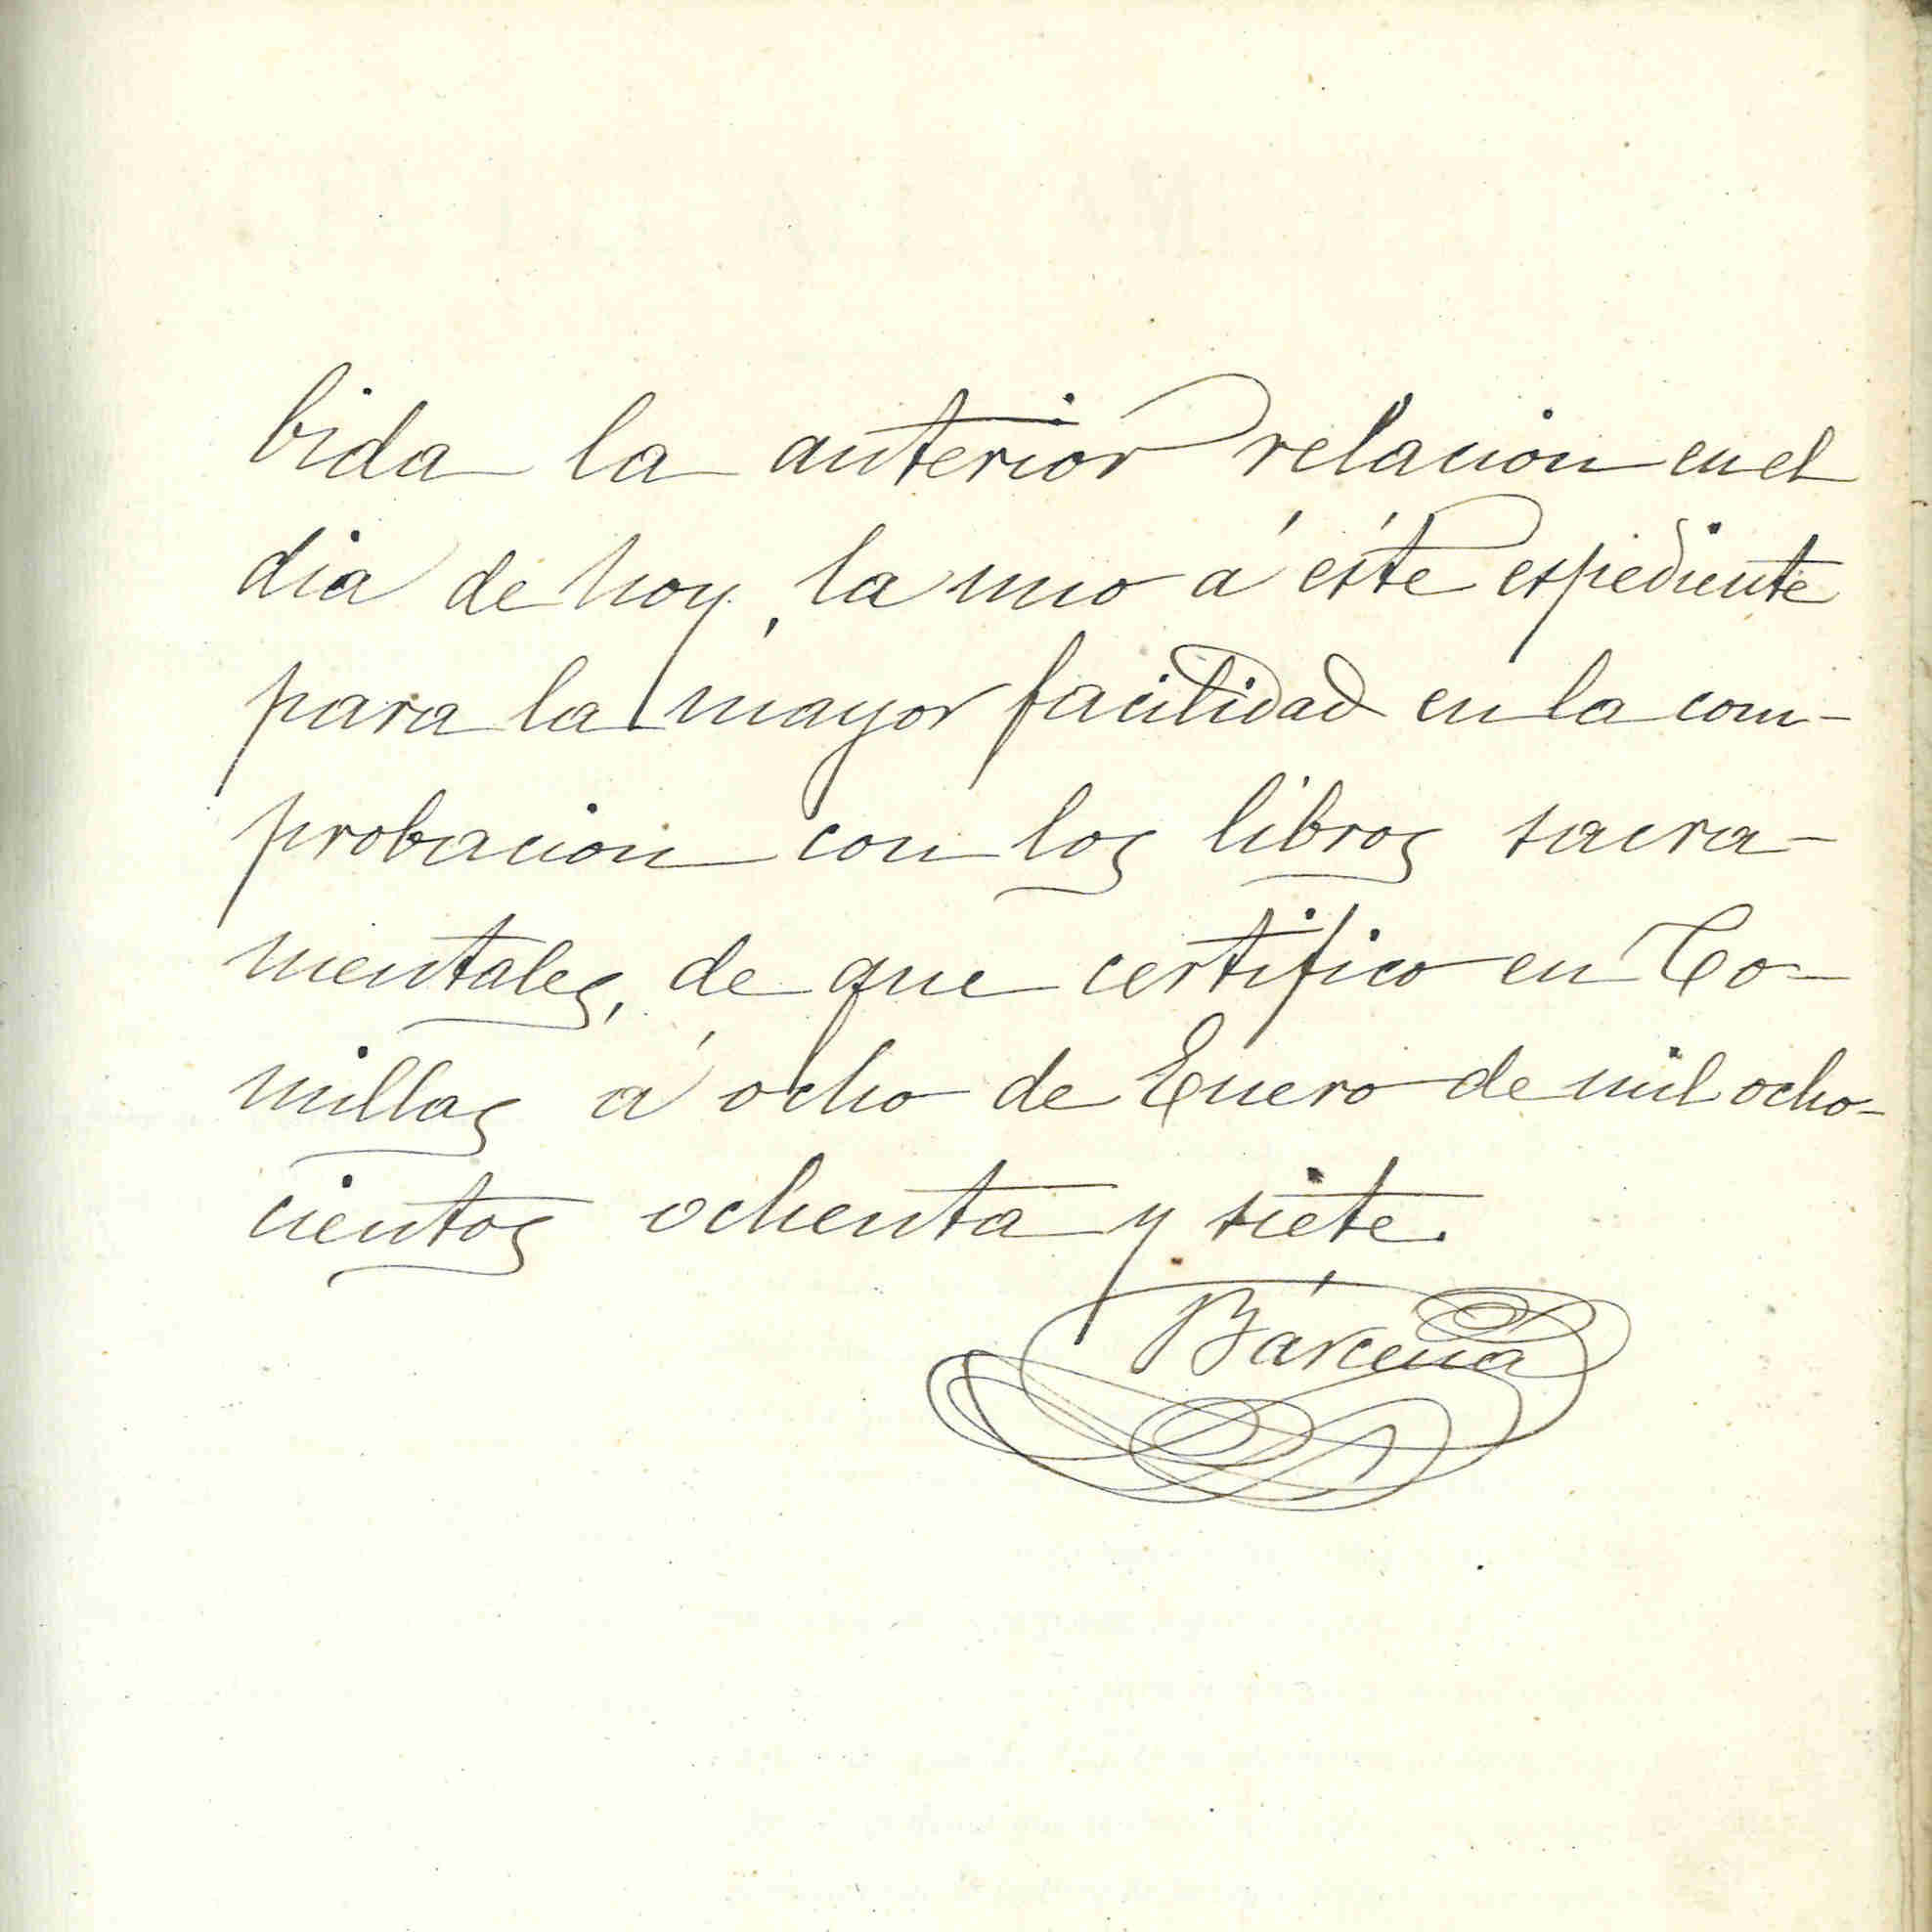 bida la anterior relacion en el
dia de hoy, la uno á éste espediente
para la mayor facilidad en la com-
probacion con los libros sacra-
mentales, de que certifico en Co-
millas á ocho de Enero de mil ocho-
cientos ochenta y siete.
Bárcena